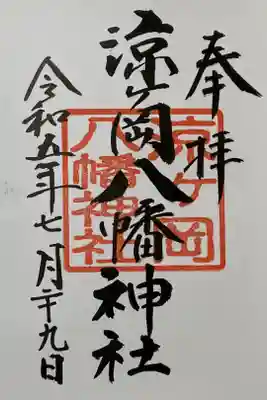 奉拝
涼ケ岡八幡神社
涼ケ岡
八幡神社
令和五年七月二十九日